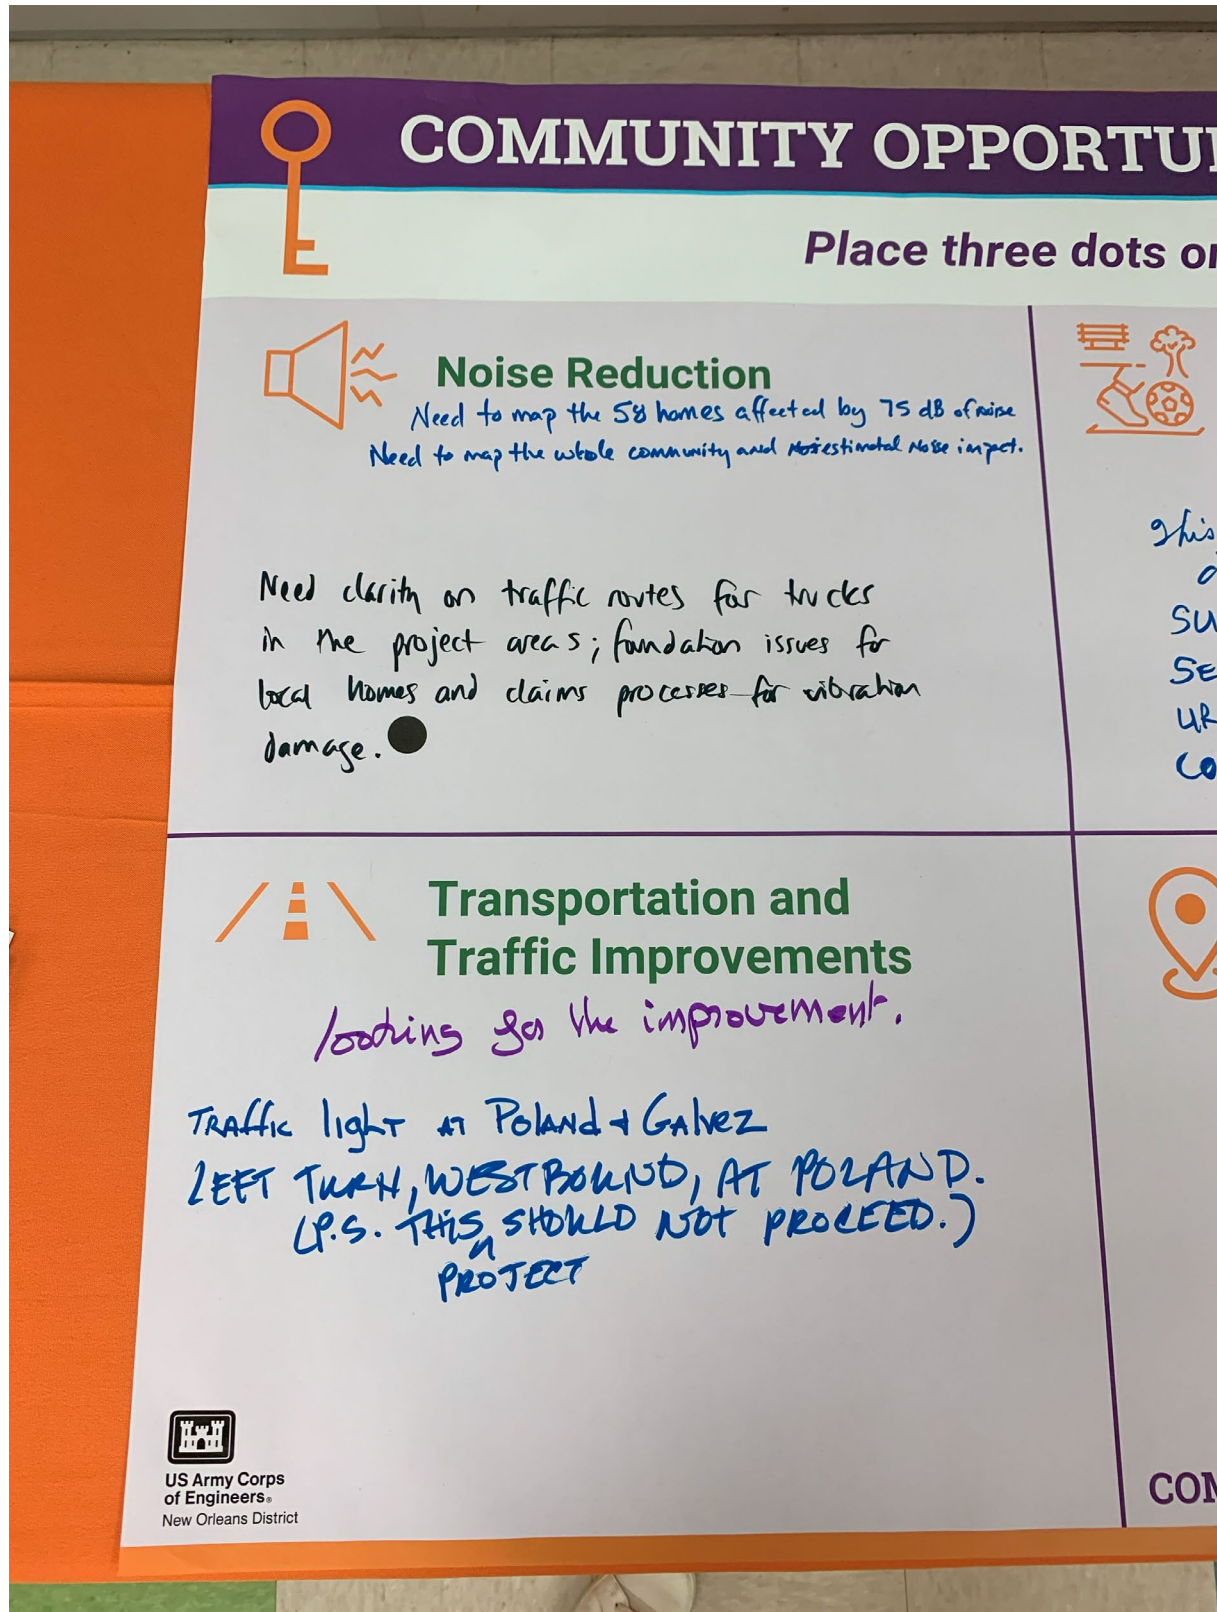 COMMUNITY OPPORTU
Place three dots or
Noise Reduction
Need to map the 58 homes affected by 75 dB of noise
Need to map the whole community and estimatal Noise impact.
Need clarity on traffic routes for trucks
in the project areas; foundation issues for
local homes and claims processes for vibration
damage.
This
SU
SE
UR
CO
Transportation and
Traffic Improvements
looking for the improvement.
TRAffic light AT Poland + Galvez
LEFT TURN, WESTBOUND, AT POLAND.
(P.S. THIS ^ SHOULD NOT PROCEED.)
PROJECT
US Army Corps
of Engineers®
New Orleans District
COM